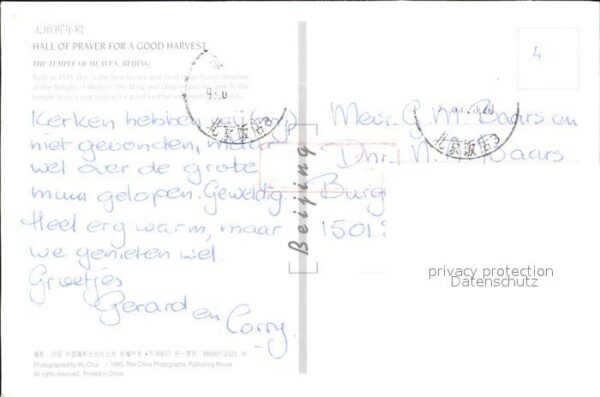 天壇祈年殿
HALL OF PRAYER FOR A GOOD HARVEST
THE TEMPLE OF HEAVEN, BEIJING
Built in 1545, this is the best known and most magnificent structure
at the Temple of Heaven. The Ming and Qing emperors came to the
temple twice a year to pray for good weather and good harvests.
Kerken hebben wij
niet gevonden, maar
wel over de grote
muur gelopen. Geweldig.
Heel erg warm, maar
we genieten wel.
Groetjes
Gerard en
Corry
Mevr. G.M. Baars en
Dhr. Baars
Burg
1501
Beijing
北京饭店3
北京饭店3
L
privacy protection
Datenschutz
Photographed by Hu Chui © 1995 The China Photographic Publishing House
All rights reserved. Printed in China